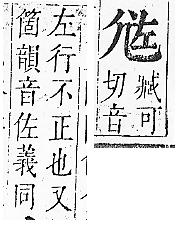 㞀
臧可
切音
左行不正也又
箇韻音佐義同